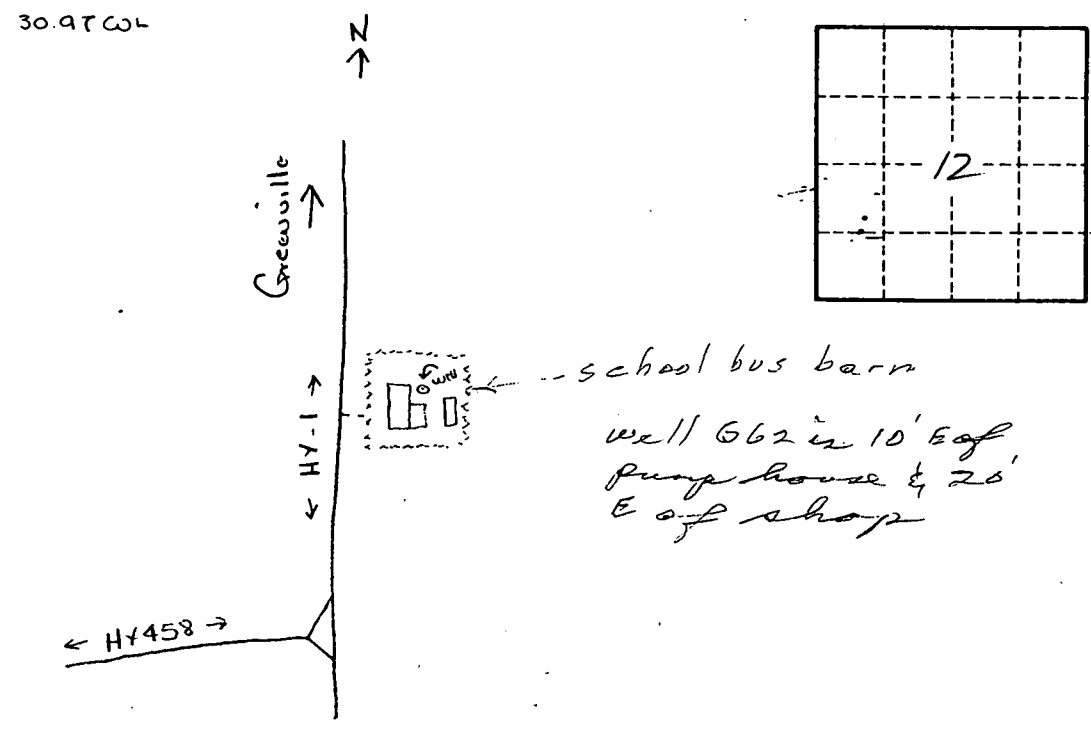 N
Greenville
12
school bus barn
Well
HY-1
well G62 is 10' E of
pump house & 20'
E of shop
HY458